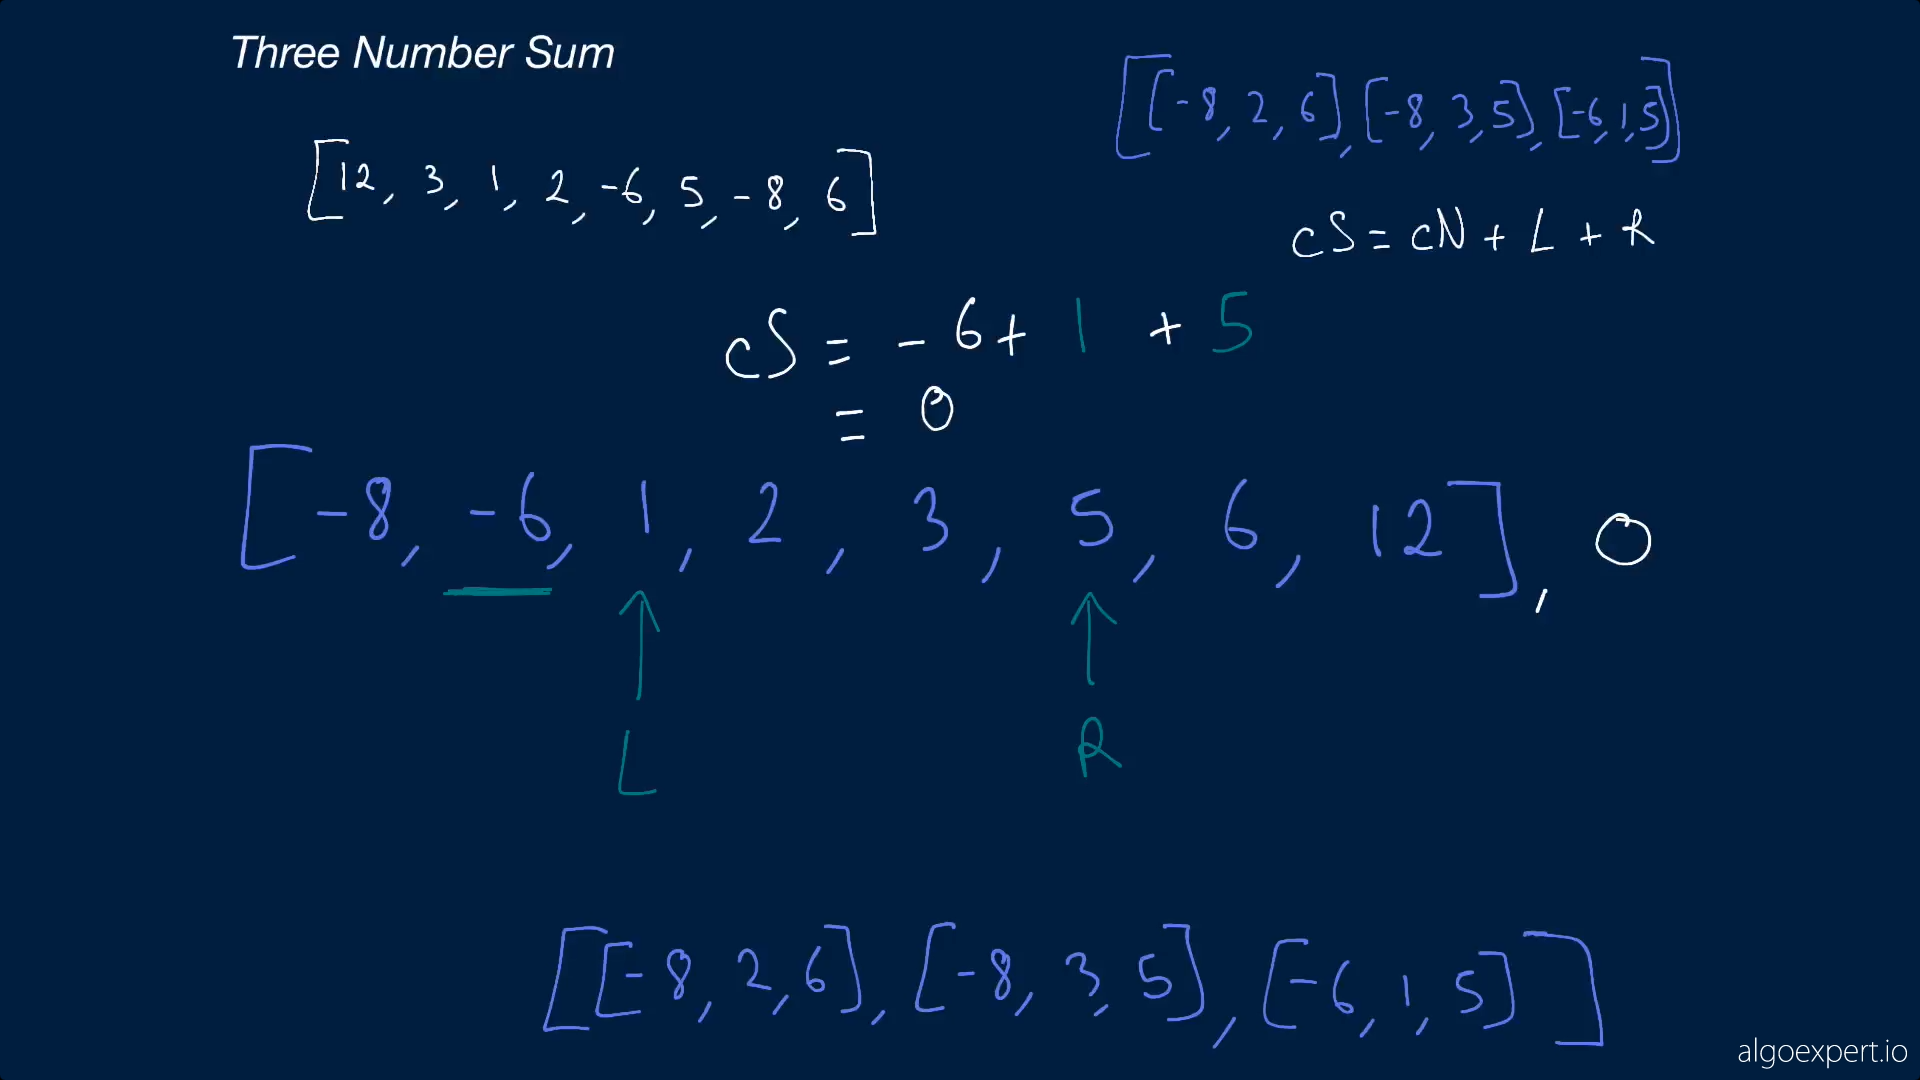 Three Number Sum
[[-8, 2, 6], [-8, 3, 5], [-6, 1, 5]]
[12, 3, 1, 2, -6, 5, -8, 6]
cS = cN + L + R
cS = -6 + 1 + 5
= 0
[-8, -6, 1, 2, 3, 5, 6, 12], 0
L R
[[-8, 2, 6], [-8, 3, 5], [-6, 1, 5]]
algoexpert.io